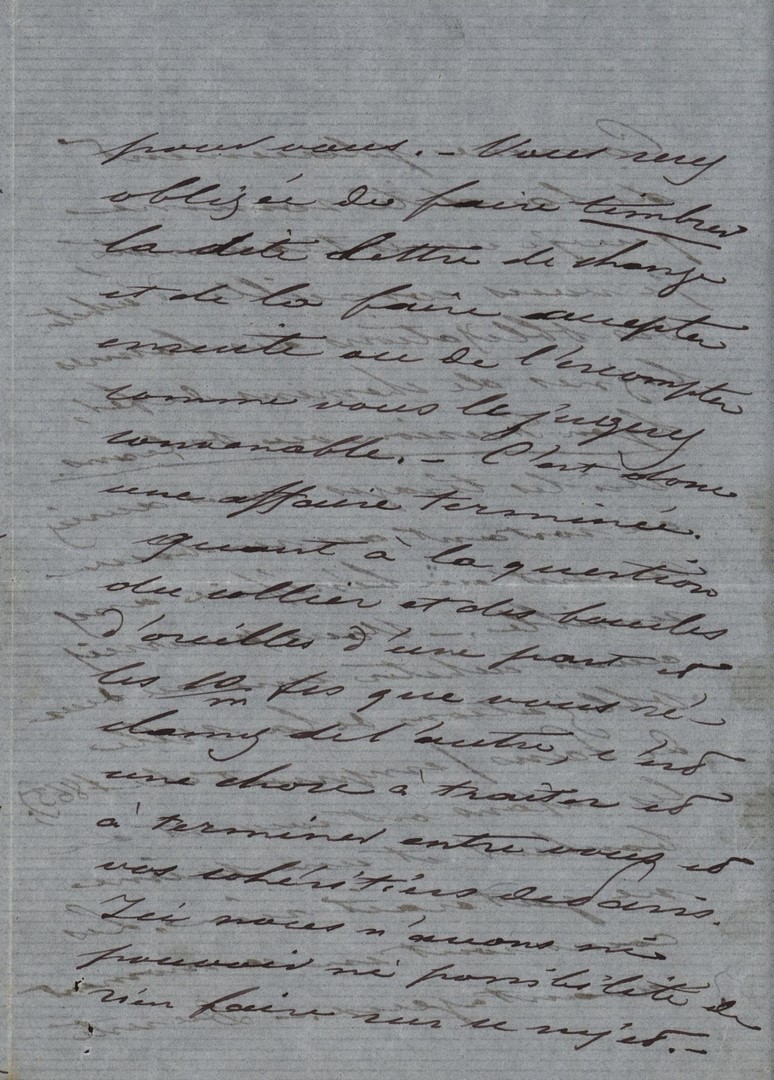 pour vous. – Vous serez
obligée de faire timbrer
la dite lettre de change
et de la faire accepter
ensuite ou de l'escompter
comme vous le jugerez
convenable. – C'est donc
une affaire terminée.
quant à la question
du collier et des boucles
d'oreilles d'une part et
les 10/m fcs que vous ré-
clamez de l'autre, c'est
une chose à traiter et
à terminer entre vous et
vos cohéritiers de Paris.
Ici nous n'avons ni
pouvoir ni possibilité de
rien faire sur ce sujet. –